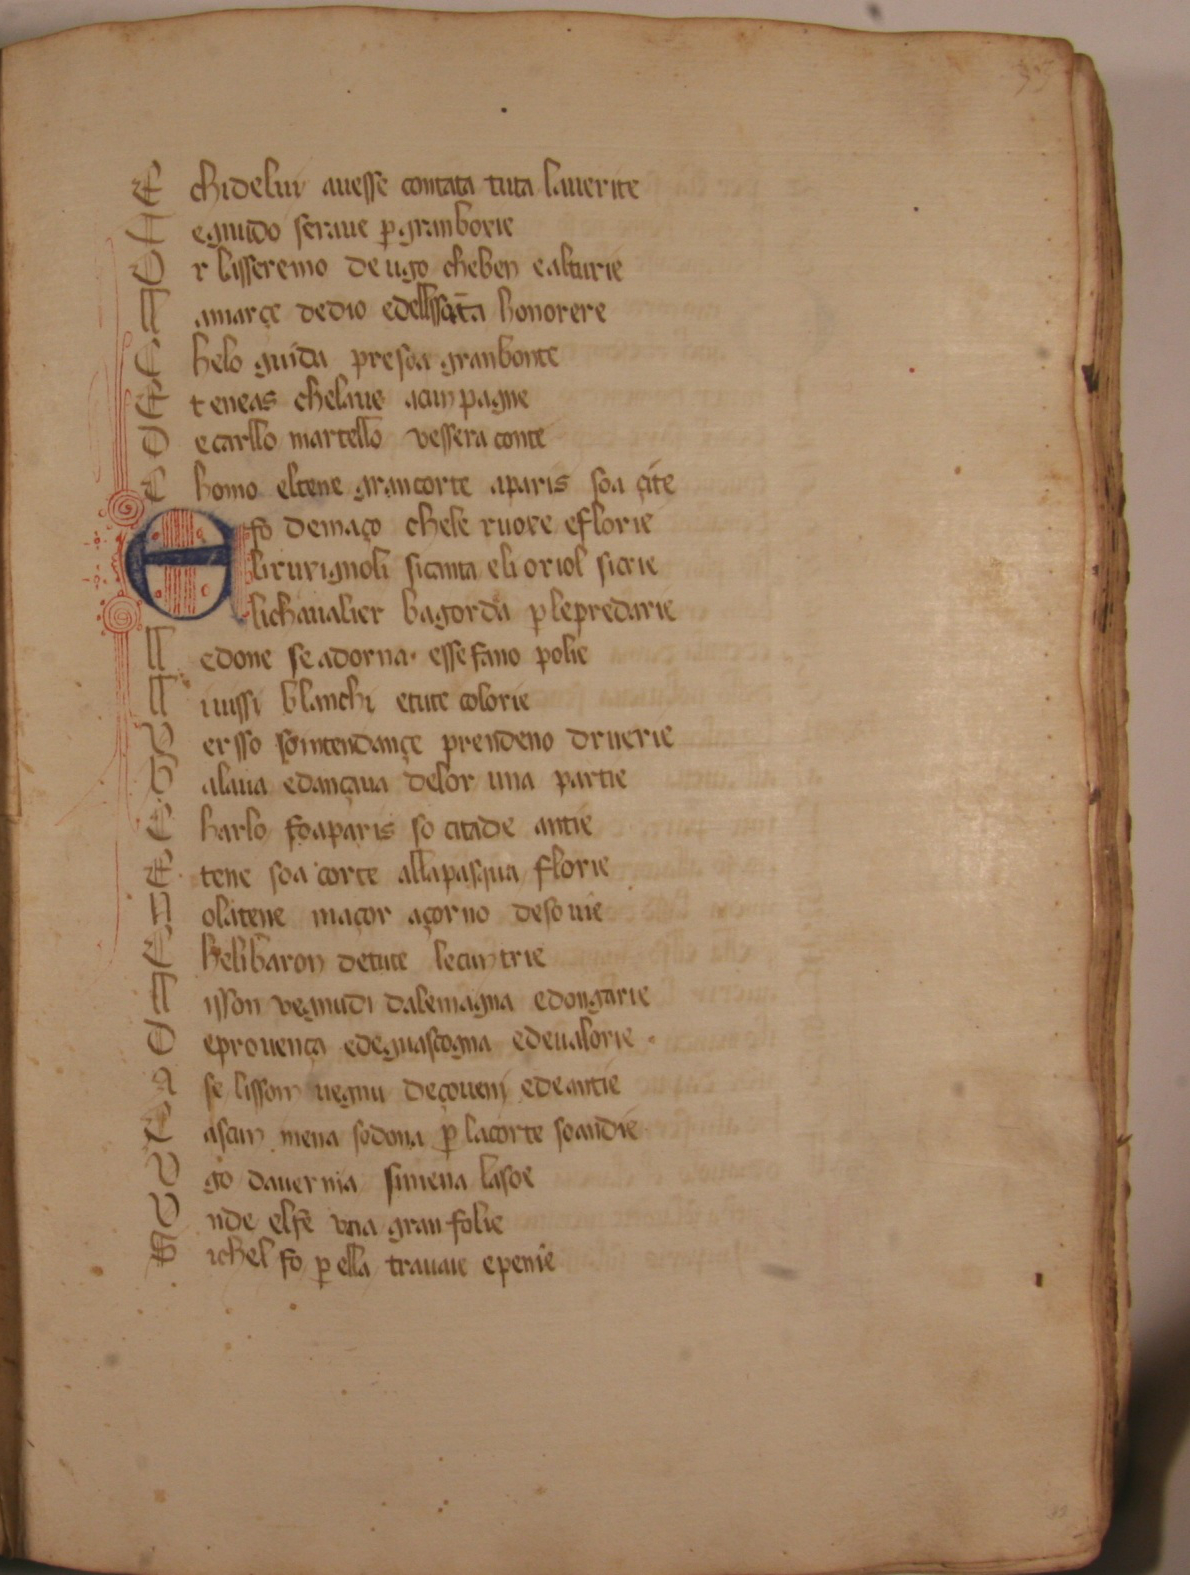 E chidelui auesse contata tuta lauerite
E eguido seraue p̱ granborie
O r lisseremo de ugo cheben ealturie
M amarçe dedio edellissãta honorere
C helo guida presoa granbonte
E t eneas chelaue acunpagne
D ecarllo martello vessera conte
C homo eltene grancorte aparis soa çite
E fo demaço chele ruose eflorie
li rurignoli sicanta eli oriol sicrie
li chaualier bagorda p̱ lepredarie
L edone se adorna· esse fano polie
M iuissi blanchi etute colorie
V ersso so intendançe prendeno druerie
B alaua edançaua delor una partie
C harlo fo aparis so citade antie
E tene soa corte alla pasqua florie
N olatene maçor açorno desouie
C heli baron detute lecuntrie
L isson vegnudi dalemagna edongarie
D eprouença edeguascogna edeualorie ·
A se lisson uegnu deçoueni edeantie
C ascun mena sodona p̱ lacorte soandie
V go dauernia simena lasoe
V nde elfe vna gran folie
S ichel fo p̱ ella trauaie epenie